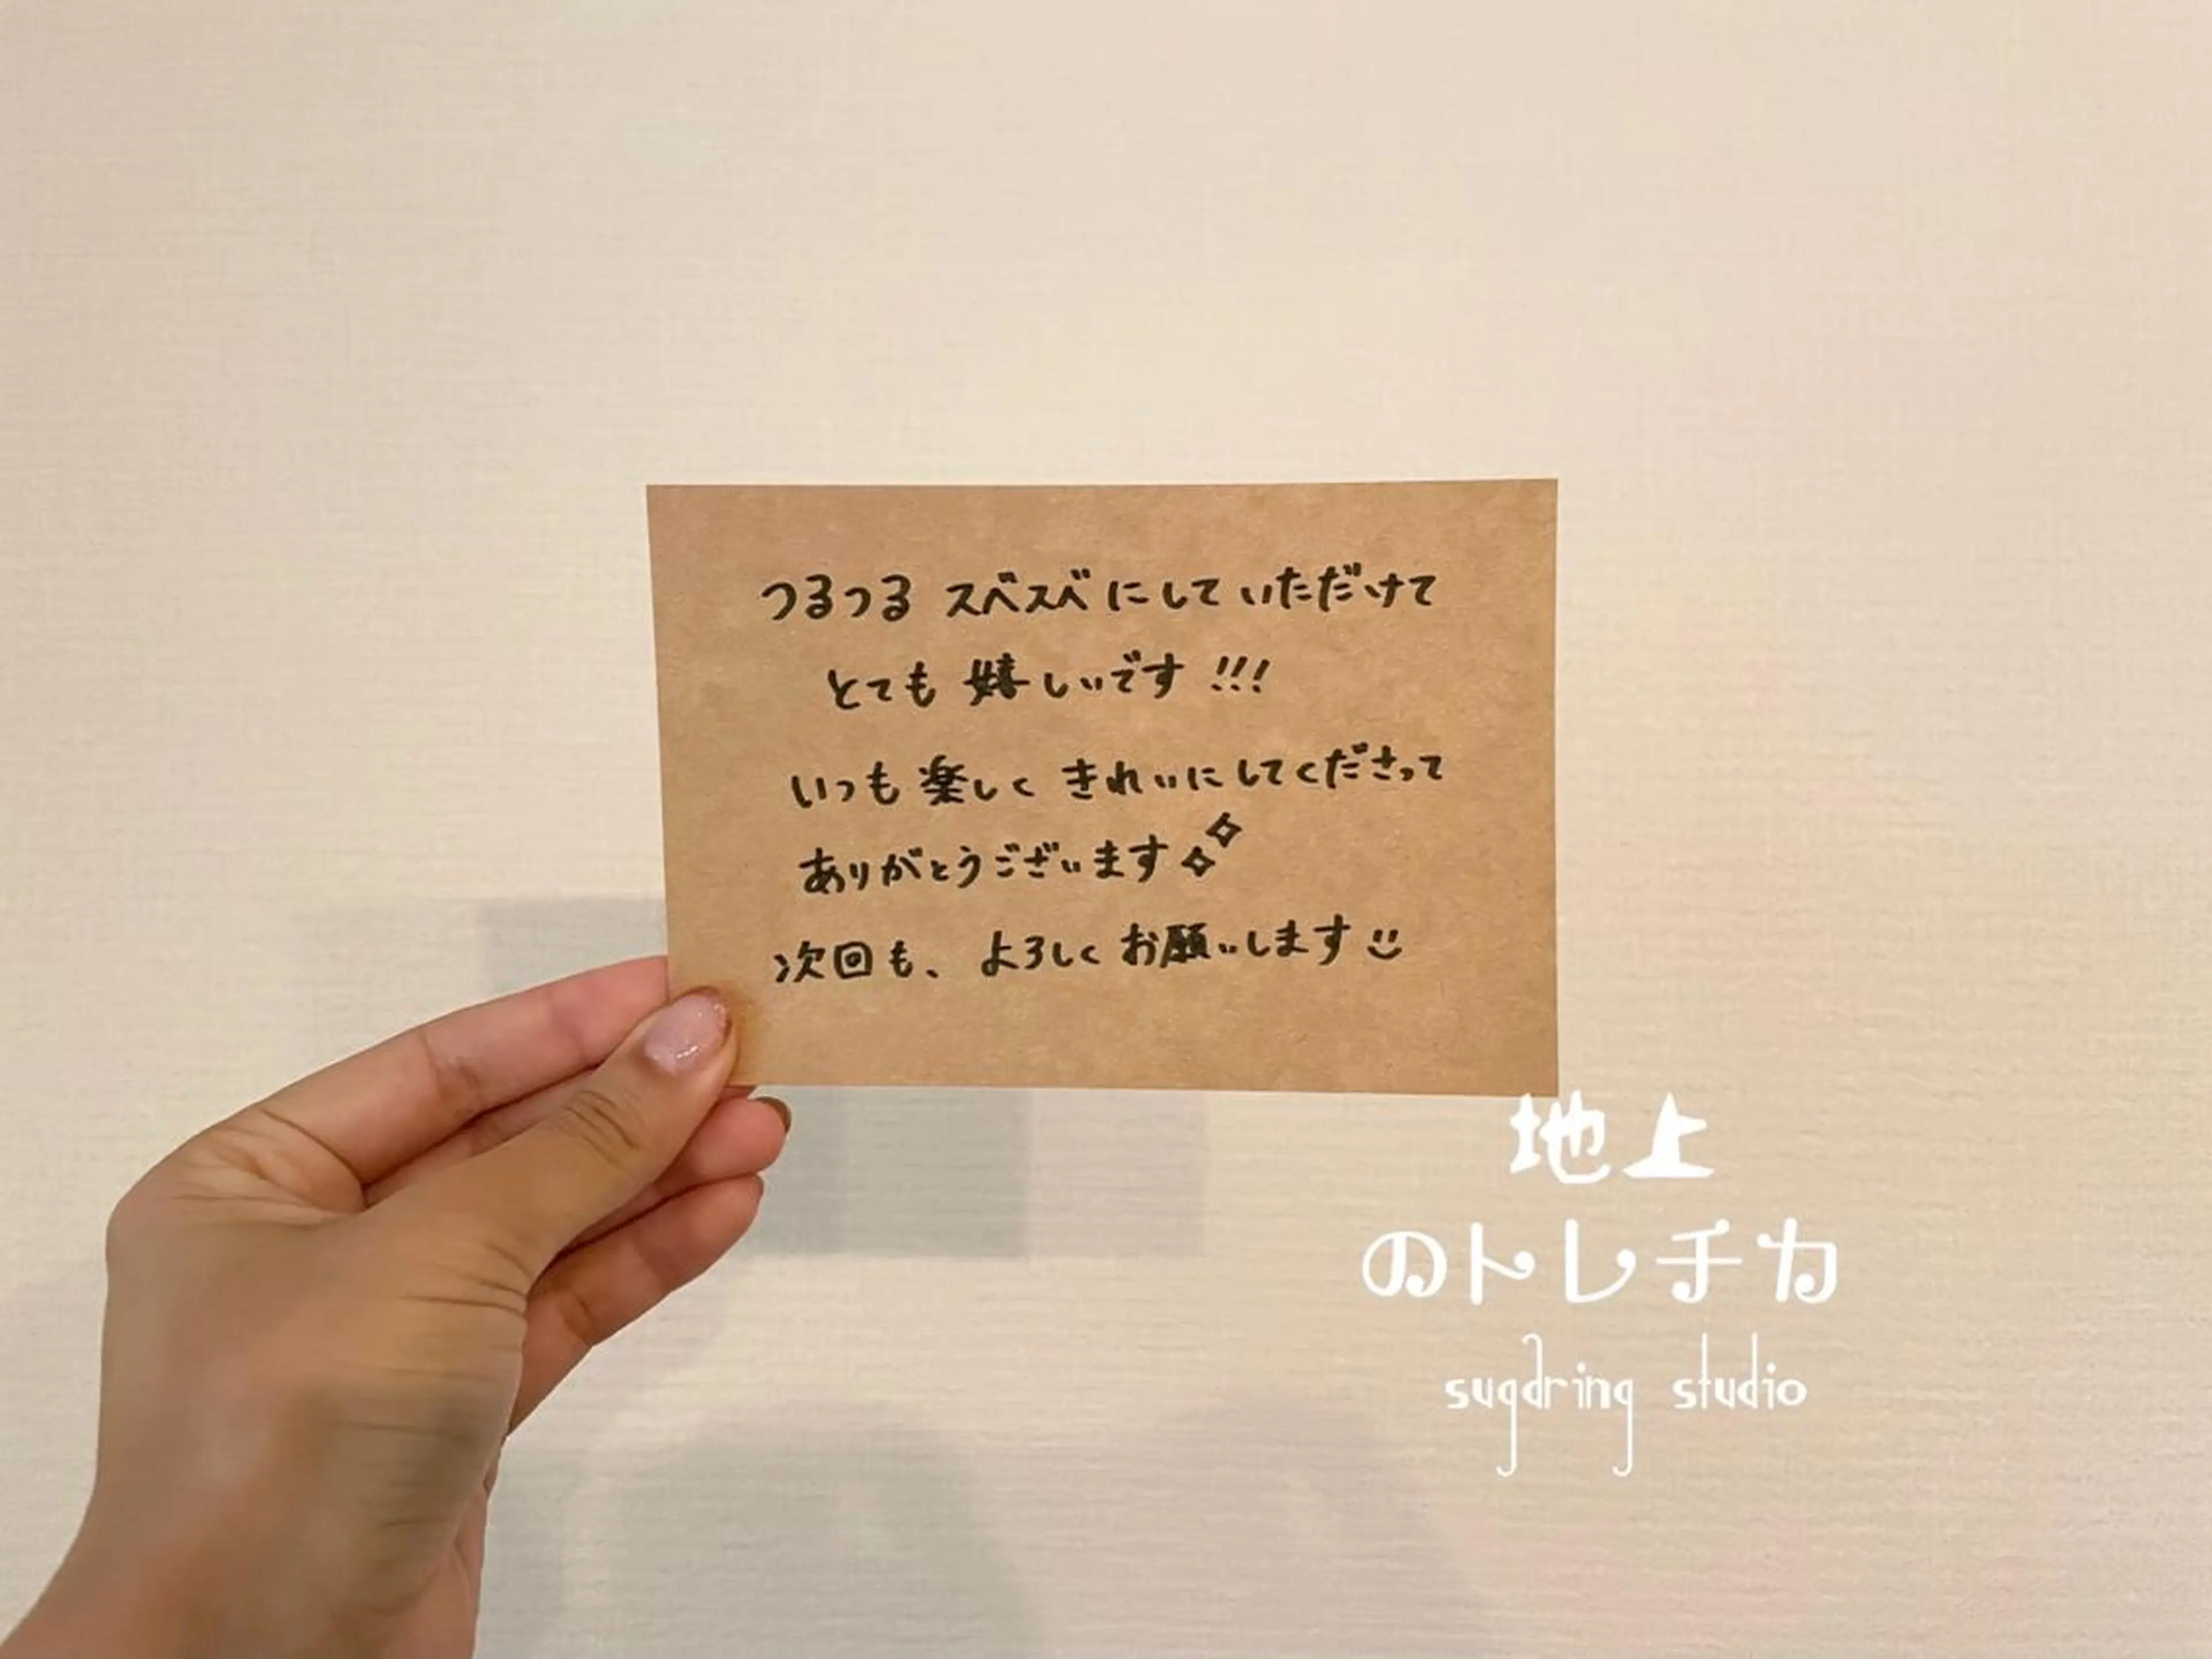 つるつる スベスベにしていただけて
とても 嬉しいです!!!
いつも楽しく きれいにしてくださって
ありがとうございます
次回も、よろしくお願いします
地上
のトレチカ
sugaring studio